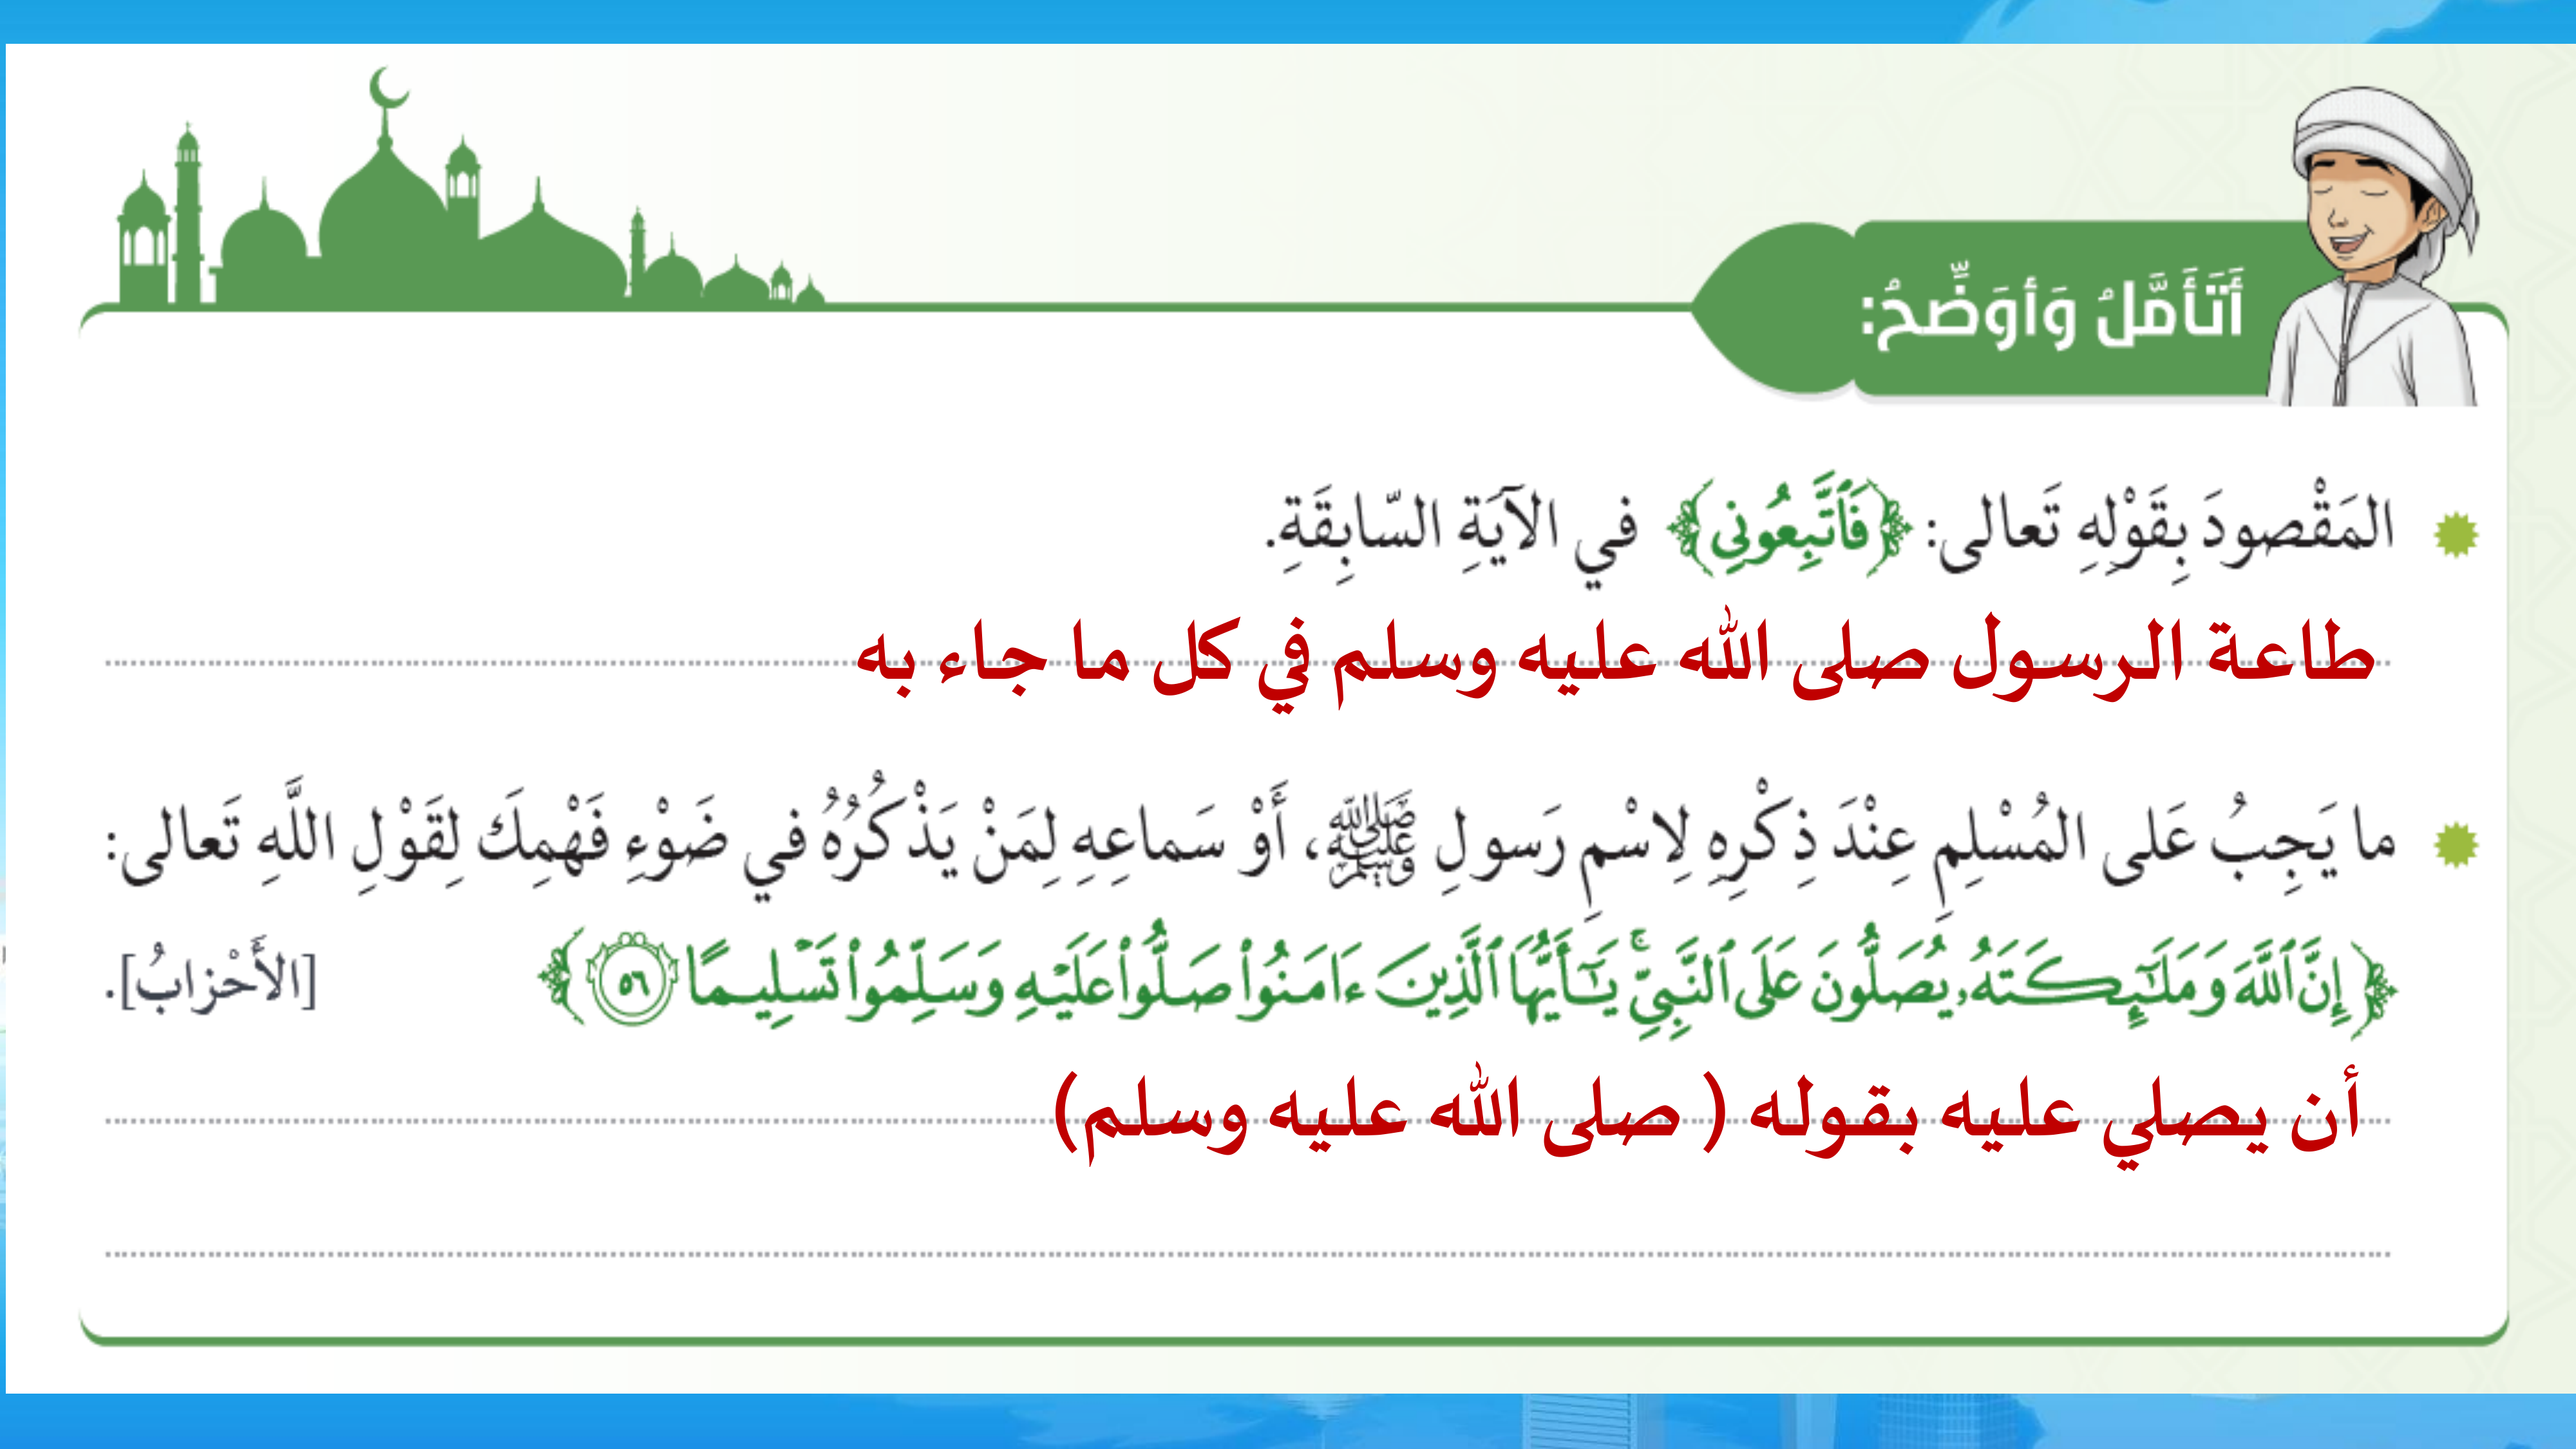 أَتَأَمَّلُ وَأوَضِّحُ:
المَقْصودَ بِقَوْلِهِ تَعالى: ﴿فَٱتَّبِعُونِي﴾ في الآيَةِ السّابِقَةِ.
طاعة الرسول صلى الله عليه وسلم في كل ما جاء به
ما يَجِبُ عَلى المُسْلِمِ عِنْدَ ذِكْرِهِ لِاسْمِ رَسولِ ﷺ، أَوْ سَماعِهِ لِمَنْ يَذْكُرُهُ في ضَوْءِ فَهْمِكَ لِقَوْلِ اللَّهِ تَعالى:
﴿إِنَّ ٱللَّهَ وَمَلَٰٓئِكَتَهُۥ يُصَلُّونَ عَلَى ٱلنَّبِيِّۚ يَٰٓأَيُّهَا ٱلَّذِينَ ءَامَنُواْ صَلُّواْ عَلَيْهِ وَسَلِّمُواْ تَسْلِيمًا ٥٦﴾ [الأَحْزابُ].
أن يصلي عليه بقوله ( صلى الله عليه وسلم)